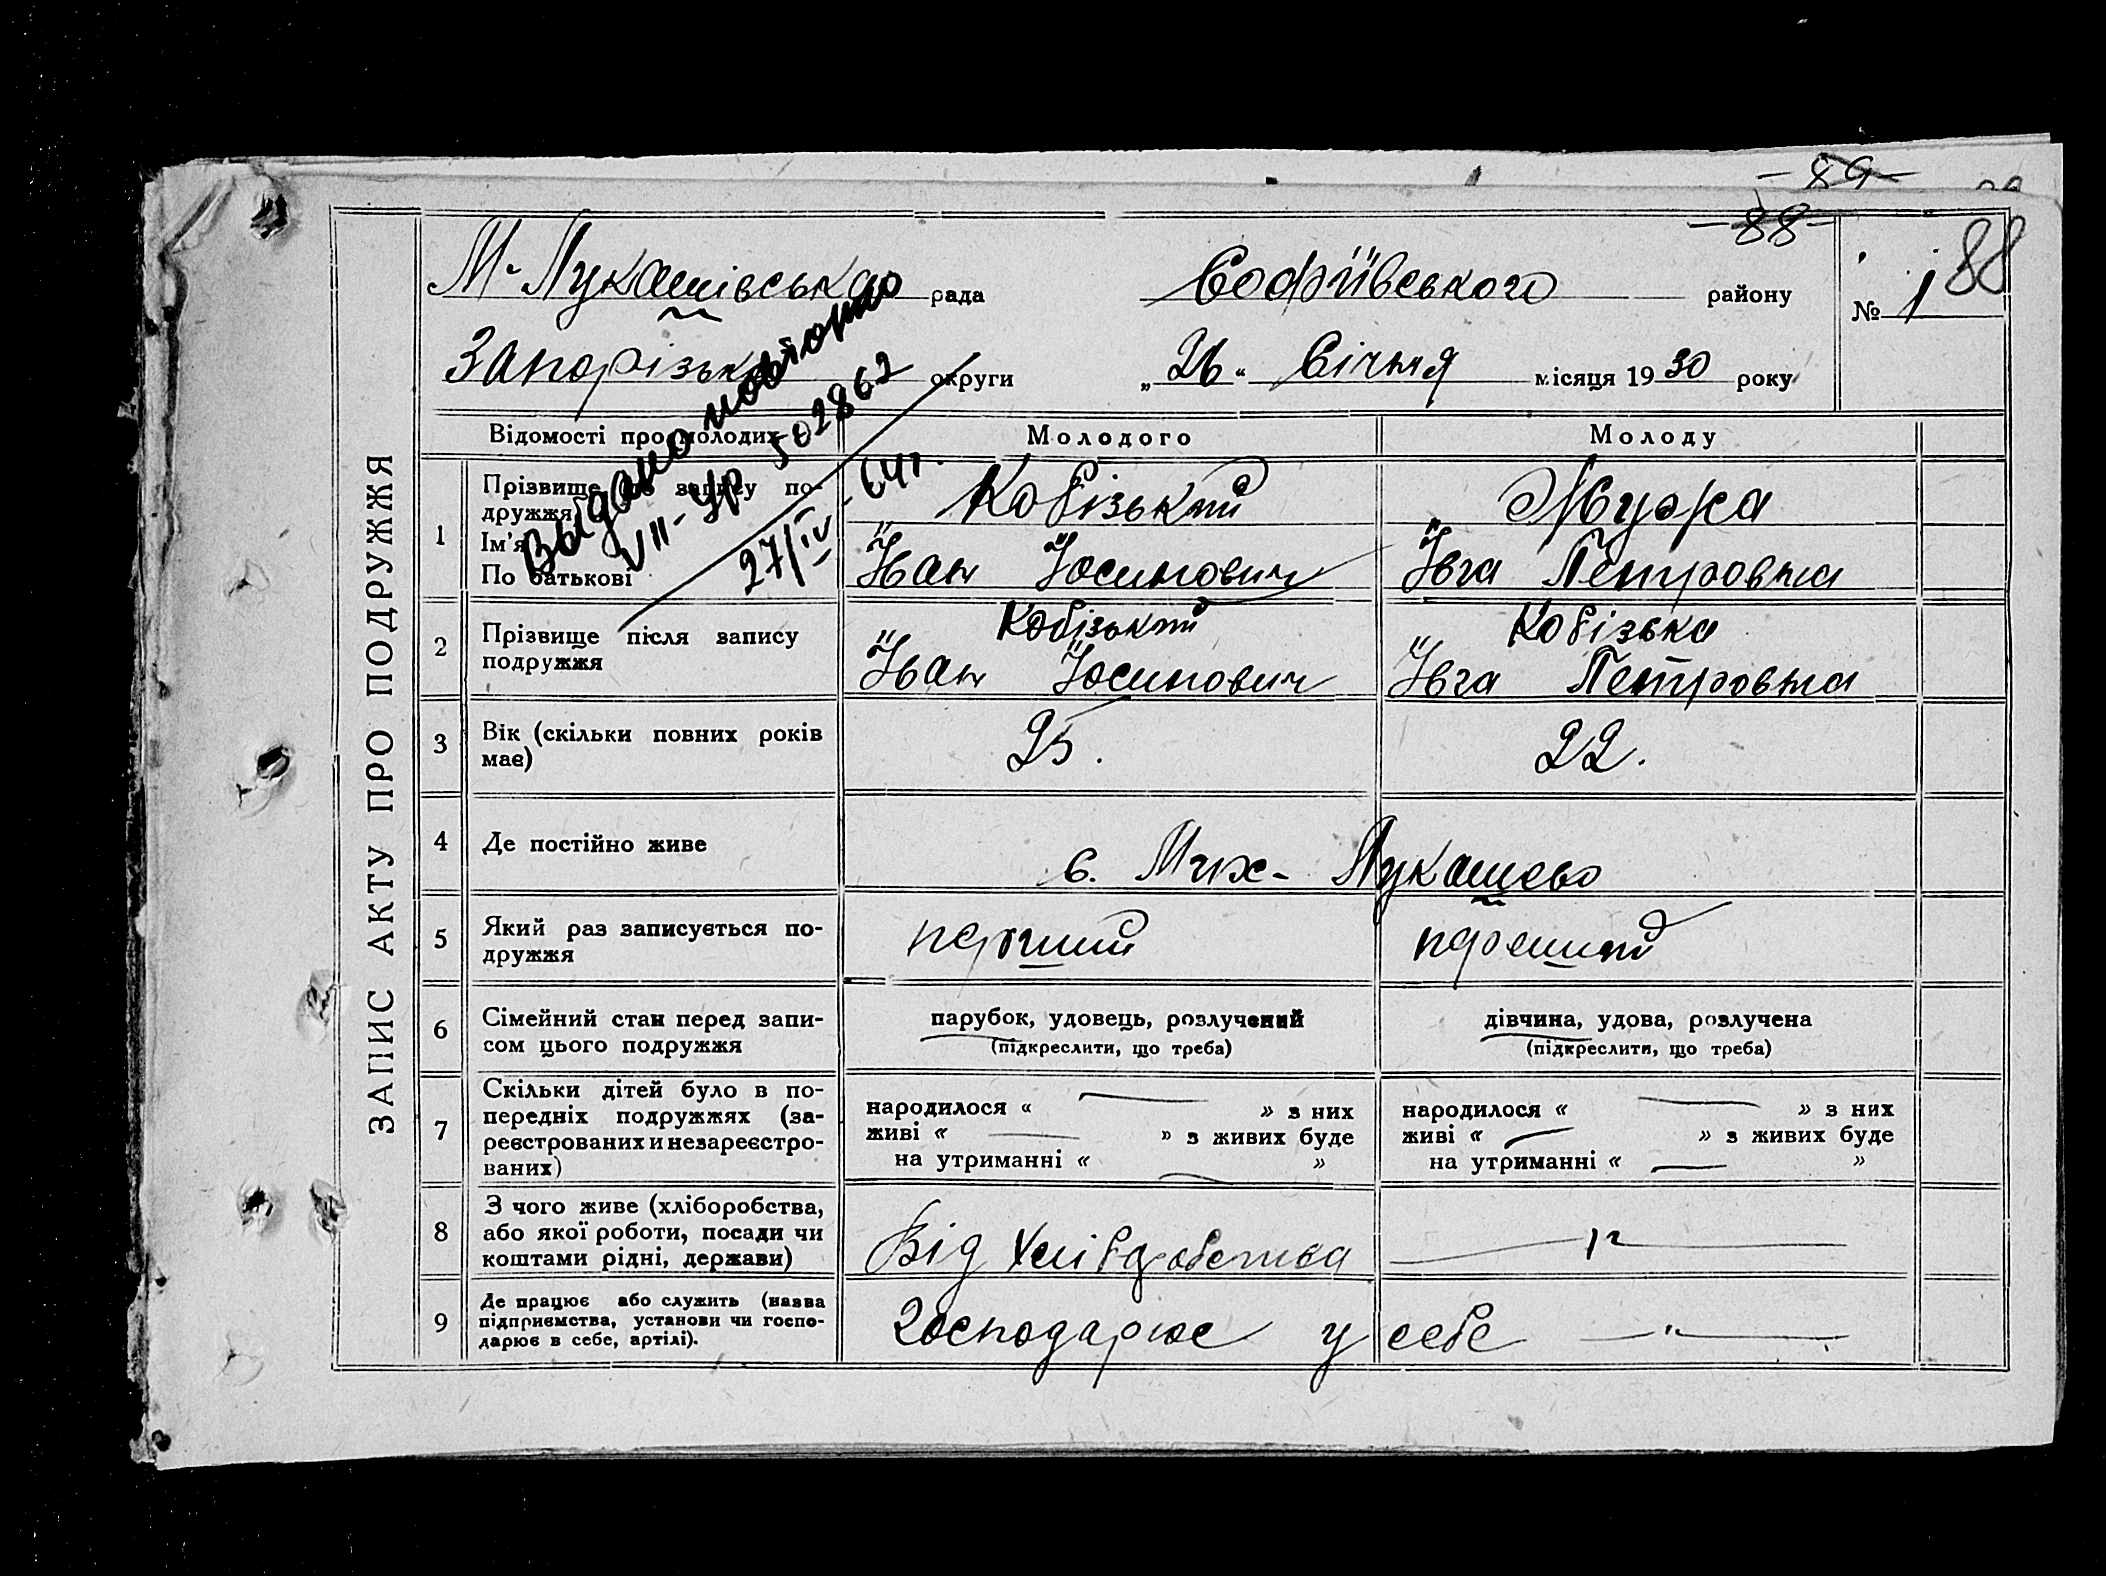 - 89 -
- 88 -
М-Лукашівська рада Софіївського району
№ 1 88
Запорізька округи „26“ Січня місяця 1930 року
Выдано повторно
VII-УР 502862
27/IV-64г.
ЗАПИС АКТУ ПРО ПОДРУЖЖЯ
Відомості про молодих Молодого Молоду
1 Прізвище до запису по-
дружжя
Ім'я
По батькові
Кобізький Мужа
Іван Йосипович Ївга Петровна
2 Прізвище після запису
подружжя
Кобізький Кобізька
Іван Йосипович Ївга Петровна
3 Вік (скільки повних років
має)
25. 22.
4 Де постійно живе
с. Мих- Лукашево
5 Який раз записується по-
дружжя
перший перший
6 Сімейний стан перед запи-
сом цього подружжя
парубок, удовець, розлучений
(підкреслити, що треба)
дівчина, удова, розлучена
(підкреслити, що треба)
7 Скільки дітей було в по-
передніх подружжях (за-
реєстрованих и незареєстро-
ваних)
народилося « — » з них
живі « — » з живих буде
на утриманні « — »
народилося « — » з них
живі « — » з живих буде
на утриманні « — »
8 З чого живе (хліборобства,
або якої роботи, посади чи
коштами рідні, держави)
Від хліборобства — " —
9 Де працює або служить (назва
підприємства, установи чи госпо-
дарює в себе, артілі).
Господарює у себе — " —